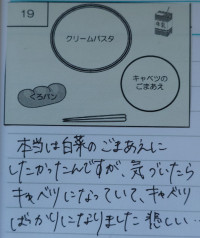 19
クリームパスタ
キャベツの
ごまあえ
くろパン
本当は白菜のごまあえに
したかったんですが、気づいたら
キャベツになっていて、キャベツ
ばっかりになりました 悲しい…